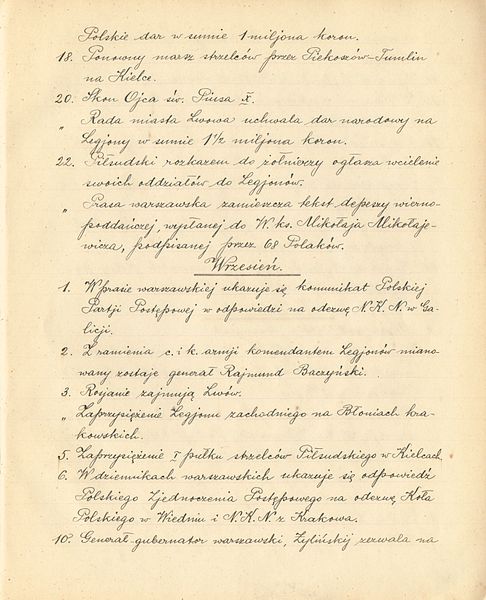 Polskie dar w sumie 1 miljona koron.
18. Ponowny marsz strzelców przez Piekoszów-Tumlin
na Kielce.
20. Skon Ojca św. Piusa X.
„ Rada miasta Lwowa uchwala dar narodowy na
Legjony w sumie 1½ miljona koron.
22. Piłsudski rozkazem do żołnierzy ogłasza wcielenie
swoich oddziałów do Legjonów.
„ Prasa warszawska zamieszcza tekst depeszy wierno-
poddańczej wysłanej do W. ks. Mikołaja Mikołaje-
wicza, podpisanej przez 68 Polaków.
Wrzesień.
1. W prasie warszawskiej ukazuje się komunikat Polskiej
Partji Postępowej w odpowiedzi na odezwę N.K.N. w Ga-
licji.
2. Z ramienia c. i k. armji komendantem Legjonów miano-
wany zostaje generał Rajmund Baczyński.
3. Rosjanie zajmują Lwów.
„ Zaprzysiężenie Legjonu zachodniego na Błoniach kra-
kowskich.
5. Zaprzysiężenie I pułku strzelców Piłsudskiego w Kielcach.
6. W dziennikach warszawskich ukazuje się odpowiedź
Polskiego Zjednoczenia Postępowego na odezwę Koła
Polskiego w Wiedniu i N.K.N. z Krakowa.
10. Generał-gubernator warszawski, Żyliński zezwala na